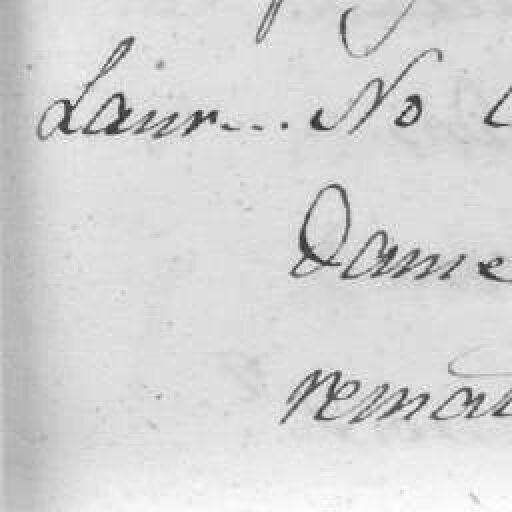 Laur... No
Dame
remai